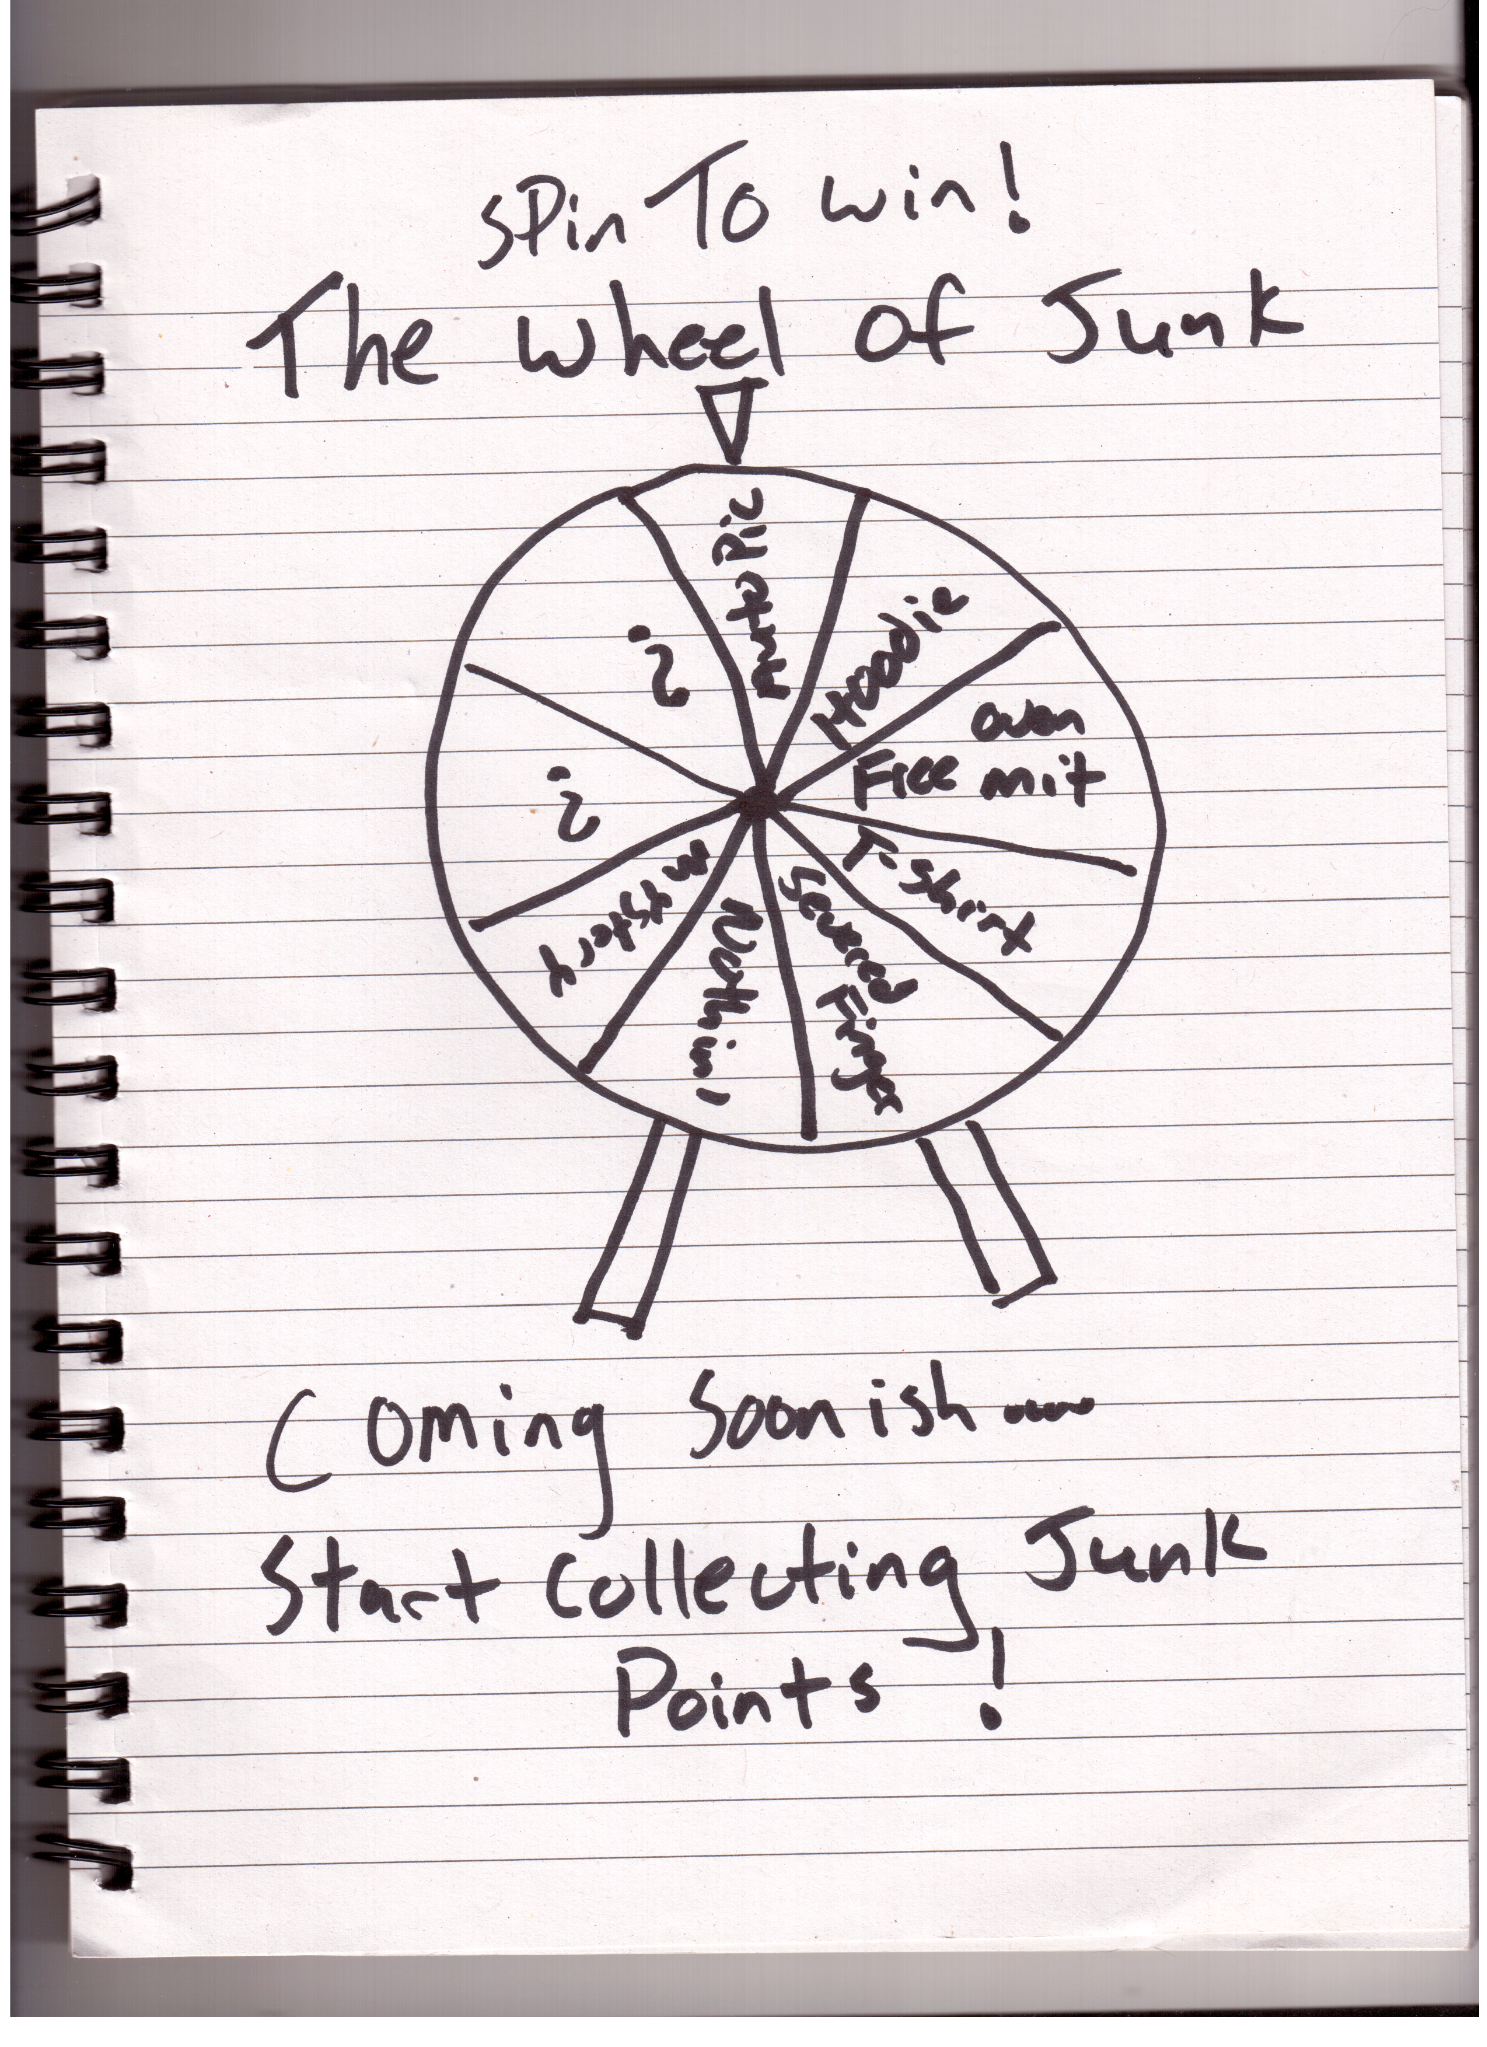 SPin To win!
The Wheel of Junk
Auto Pic
Hoodie
Free oven mit
T-Shirt
Severed Finger
Nothin!
mystery
?
?
Coming Soonish.....
Start Collecting Junk
Points !